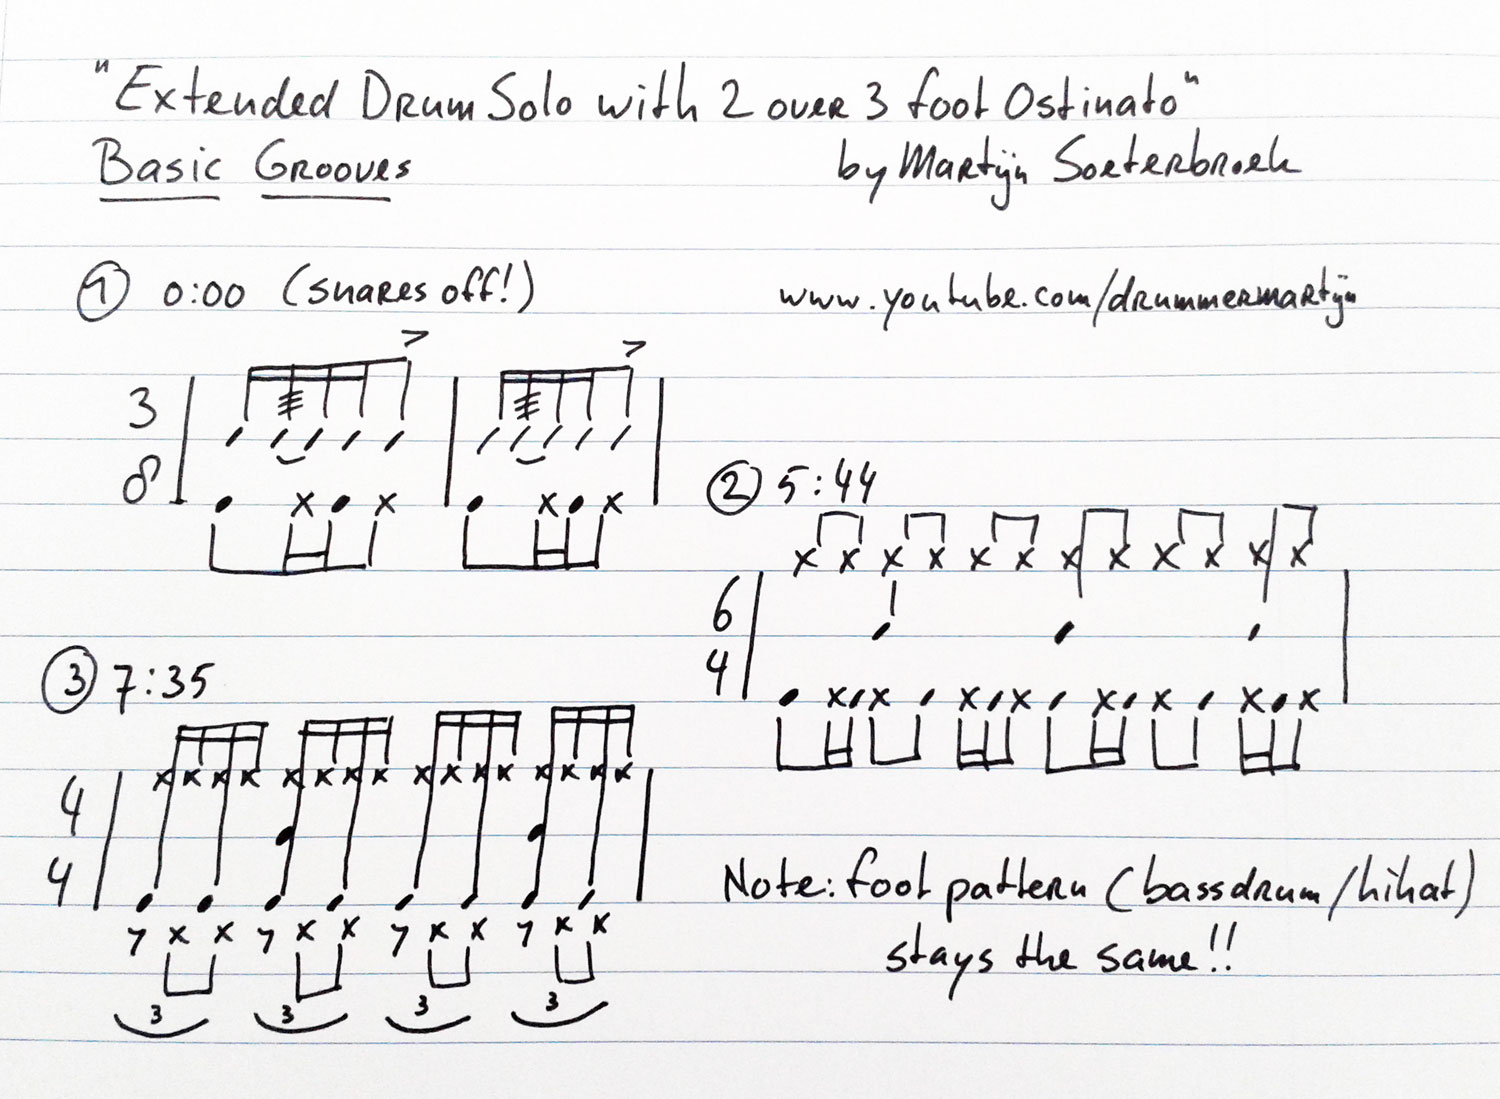 "Extended Drum Solo with 2 over 3 foot Ostinato"
Basic Grooves
by Martijn Soeterbroek
① 0:00 (snares off!)
www.youtube.com/drummermartijn
3
8
② 5:44
6
4
③ 7:35
4
4
3 3 3 3
Note: foot pattern (bassdrum/hihat)
stays the same!!